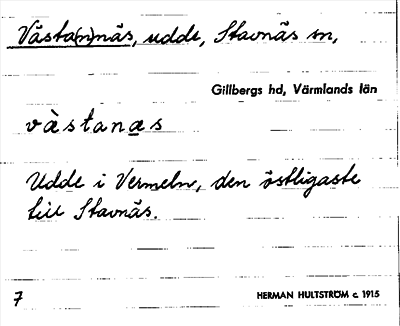 Västa(n)näs, udde, Stavnäs sn,
Gillbergs hd, Värmlands län
västanas
Udde i Vermeln, den östligaste
till Stavnäs.
7 HERMAN HULTSTRÖM c. 1915